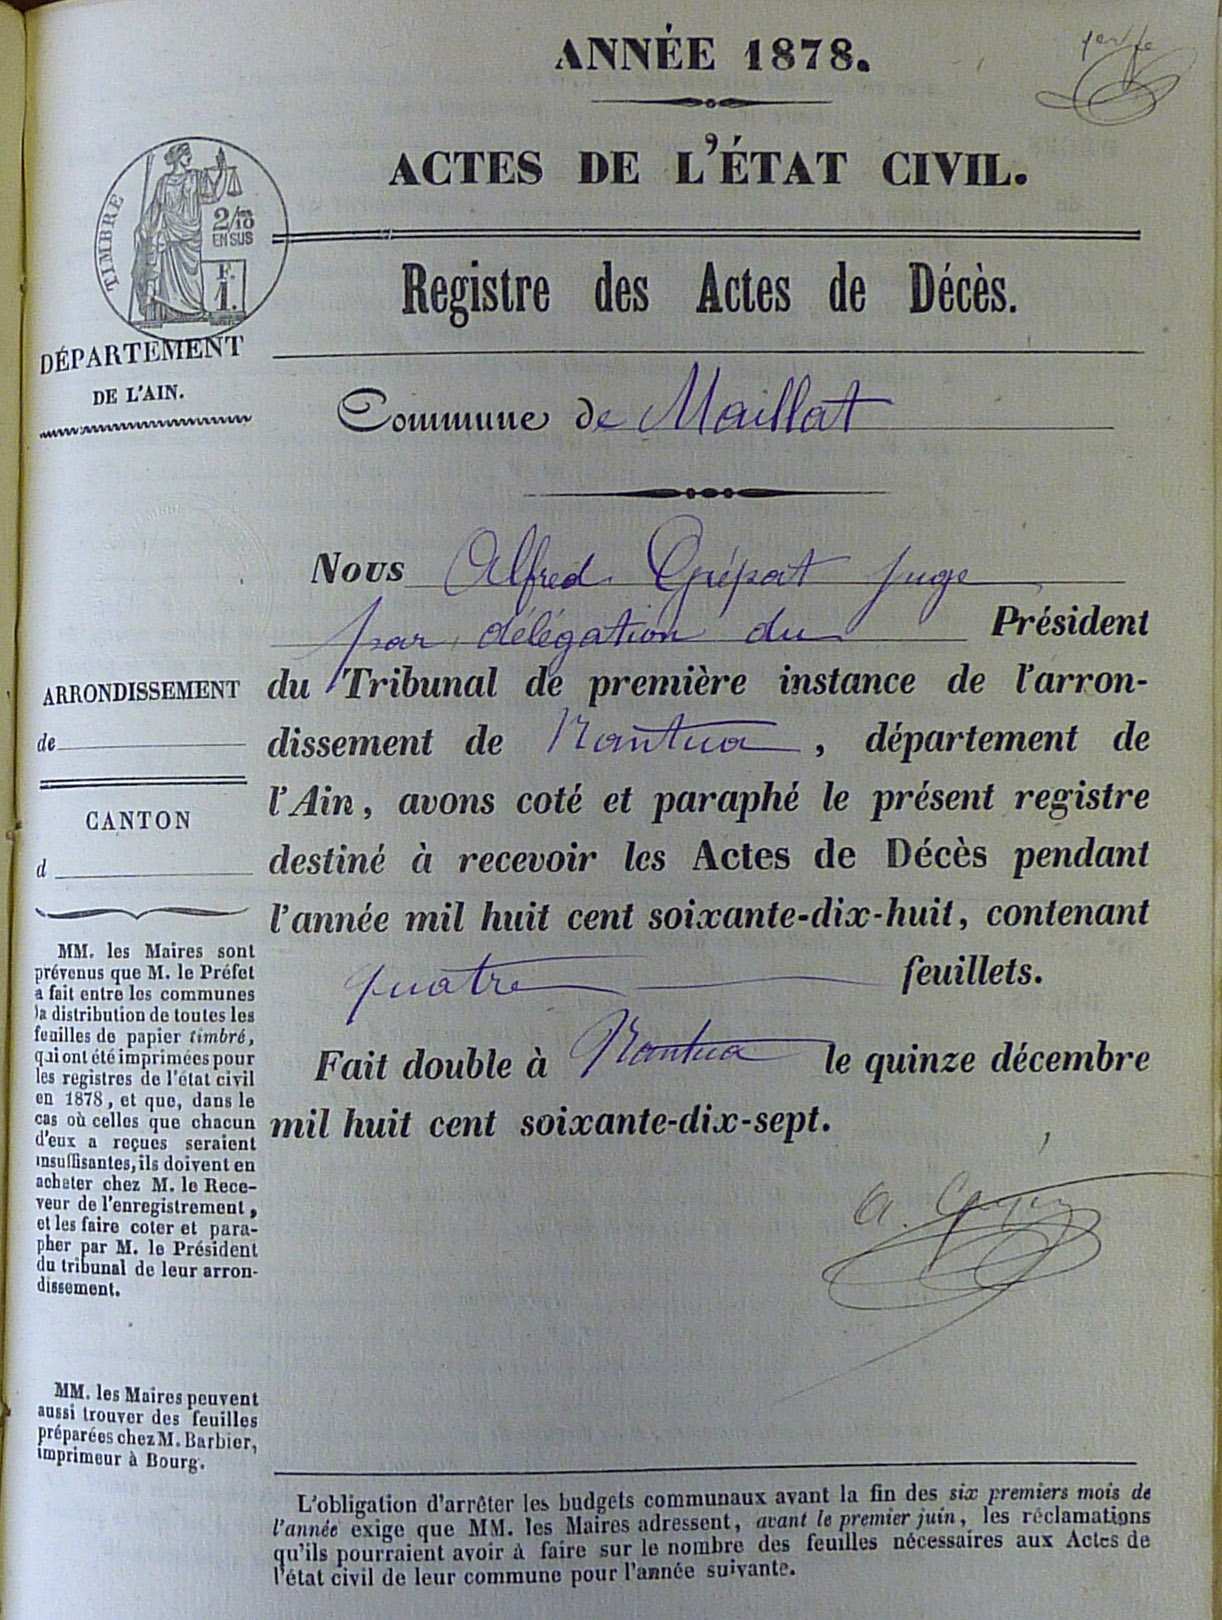 ANNÉE 1878.
ACTES DE L'ÉTAT CIVIL.
TIMBRE
2/10
EN SUS
F.
1.
Registre des Actes de Décès.
DÉPARTEMENT
DE L'AIN.
Commune de Maillat
Nous Alfred juge
par délégation du Président
du Tribunal de première instance de l'arron-
dissement de Nantua, département de
l'Ain, avons coté et paraphé le présent registre
destiné à recevoir les Actes de Décès pendant
l'année mil huit cent soixante-dix-huit, contenant
quatre feuillets.
Fait double à Nantua le quinze décembre
mil huit cent soixante-dix-sept.
ARRONDISSEMENT
de
CANTON
d
MM. les Maires sont
prévenus que M. le Préfet
a fait entre les communes
la distribution de toutes les
feuilles de papier timbré,
qui ont été imprimées pour
les registres de l'état civil
en 1878, et que, dans le
cas où celles que chacun
d'eux a reçues seraient
insuffisantes, ils doivent en
acheter chez M. le Rece-
veur de l'enregistrement,
et les faire coter et para-
pher par M. le Président
du tribunal de leur arron-
dissement.
MM. les Maires peuvent
aussi trouver des feuilles
préparées chez M. Barbier,
imprimeur à Bourg.
L'obligation d'arrêter les budgets communaux avant la fin des six premiers mois de
l'année exige que MM. les Maires adressent, avant le premier juin, les réclamations
qu'ils pourraient avoir à faire sur le nombre des feuilles nécessaires aux Actes de
l'état civil de leur commune pour l'année suivante.